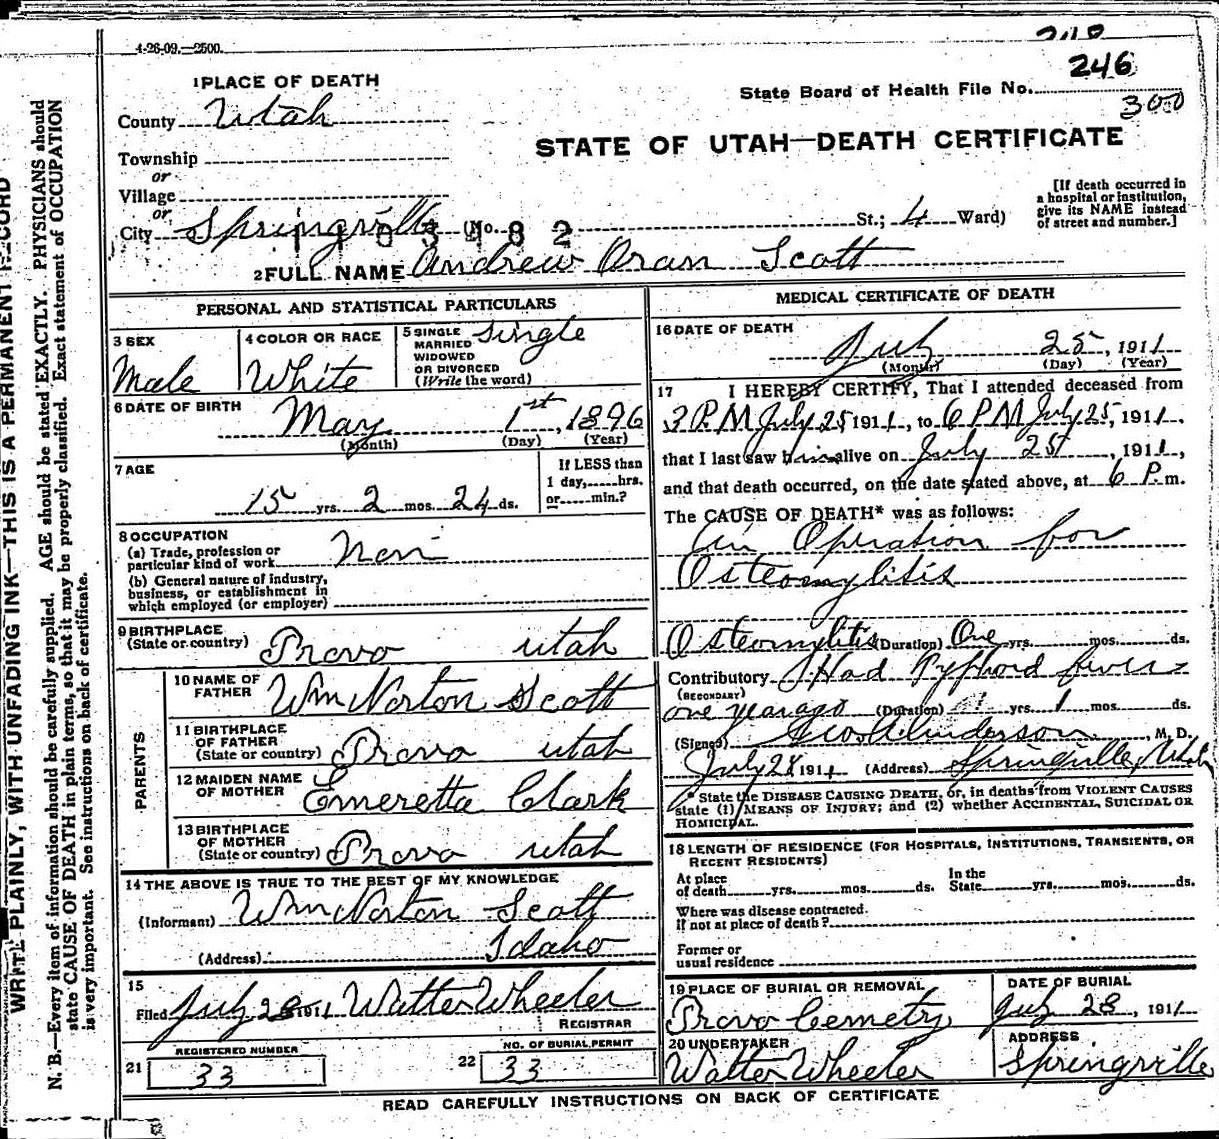 4-26-09.—2500.
246
State Board of Health File No.
300
1 PLACE OF DEATH
County Utah
STATE OF UTAH—DEATH CERTIFICATE
Township
or
Village
or
City Springville (No. St.; 4 Ward)
1103482
[If death occurred in
a hospital or institution,
give its NAME instead
of street and number.]
2 FULL NAME Andrew Oran Scott
PERSONAL AND STATISTICAL PARTICULARS
3 SEX
Male
4 COLOR OR RACE
White
5 SINGLE
MARRIED
WIDOWED
OR DIVORCED
(Write the word)
Single
6 DATE OF BIRTH
May 1st, 1896
(Month) (Day) (Year)
7 AGE
15 yrs. 2 mos. 24 ds.
If LESS than
1 day,.....hrs.
or.....min.?
8 OCCUPATION
(a) Trade, profession or
particular kind of work
(b) General nature of industry,
business, or establishment in
which employed (or employer)
9 BIRTHPLACE
(State or country) Provo Utah
PARENTS
10 NAME OF
FATHER Wm Norton Scott
11 BIRTHPLACE
OF FATHER
(State or country) Provo Utah
12 MAIDEN NAME
OF MOTHER Emeretta Clark
13 BIRTHPLACE
OF MOTHER
(State or country) Provo Utah
14 THE ABOVE IS TRUE TO THE BEST OF MY KNOWLEDGE
(Informant) Wm Norton Scott
(Address) Idaho
15
Filed July 28 1911 Walter Wheeler
REGISTRAR
REGISTERED NUMBER
21 33
NO. OF BURIAL PERMIT
22 33
MEDICAL CERTIFICATE OF DEATH
16 DATE OF DEATH
July 25, 1911
(Month) (Day) (Year)
17 I HEREBY CERTIFY, That I attended deceased from
3 P.M July 25 1911, to 6 PM July 25, 1911,
that I last saw him alive on July 25, 1911,
and that death occurred, on the date stated above, at 6 P.m.
The CAUSE OF DEATH* was as follows:
An Operation for
Osteomylitis
Osteomylitis (Duration) One yrs. mos. ds.
Contributory Had Typhoid fever
(SECONDARY)
one year ago (Duration) yrs. 1 mos. ds.
(Signed) Geo A Anderson, M. D.
July 28 1911 (Address) Springville, Utah
* State the DISEASE CAUSING DEATH, or, in deaths from VIOLENT CAUSES
state (1) MEANS OF INJURY; and (2) whether ACCIDENTAL, SUICIDAL OR
HOMICIDAL.
18 LENGTH OF RESIDENCE (FOR HOSPITALS, INSTITUTIONS, TRANSIENTS, OR
RECENT RESIDENTS)
At place
of death yrs. mos. ds.
In the
State yrs. mos. ds.
Where was disease contracted.
If not at place of death?
Former or
usual residence
19 PLACE OF BURIAL OR REMOVAL
Provo Cemetry
DATE OF BURIAL
July 28, 1911
20 UNDERTAKER
Walter Wheeler
ADDRESS
Springville
READ CAREFULLY INSTRUCTIONS ON BACK OF CERTIFICATE
WRITE PLAINLY, WITH UNFADING INK—THIS IS A PERMANENT RECORD
N. B.—Every item of information should be carefully supplied. AGE should be stated EXACTLY. PHYSICIANS should
state CAUSE OF DEATH in plain terms, so that it may be properly classified. Exact statement of OCCUPATION
is very important. See instructions on back of certificate.